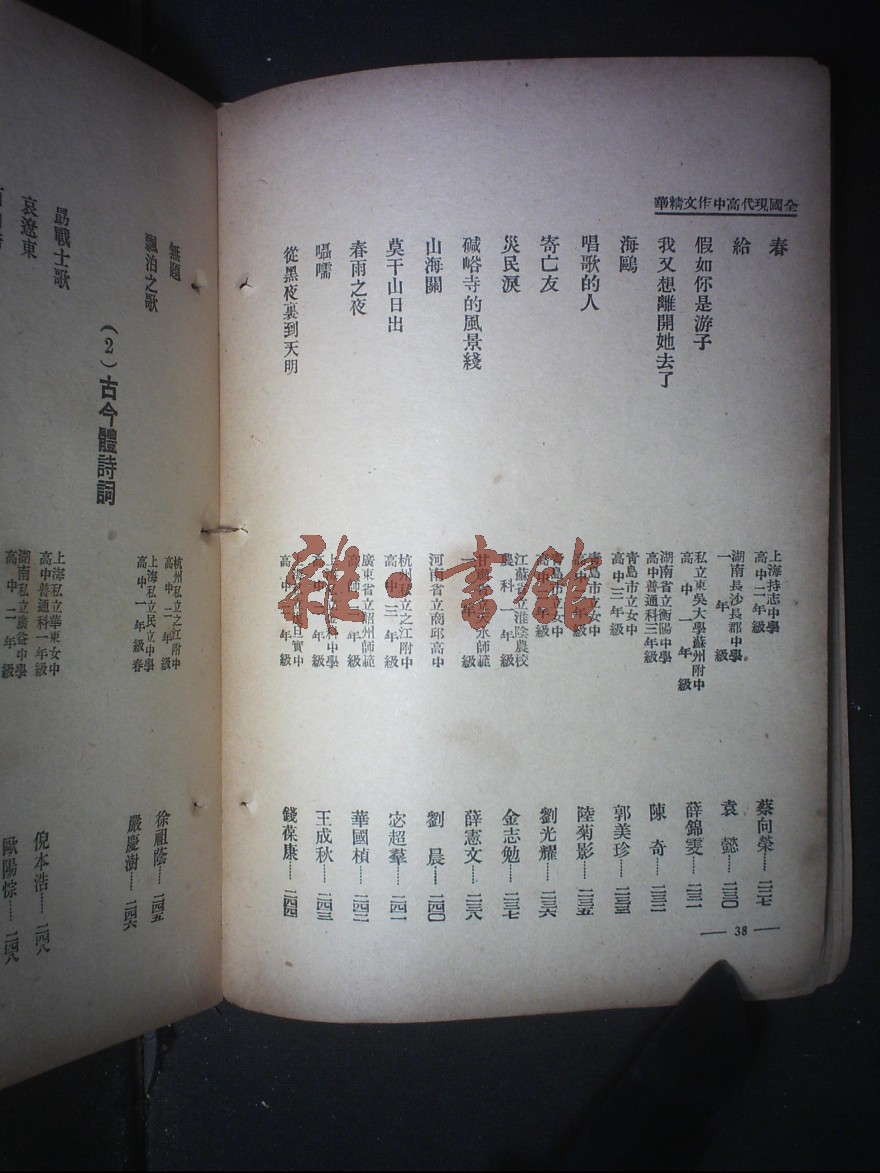 全國現代高中作文精華
春
上海持志中學
高中二年級
蔡向榮……二二七
給
湖南長沙長郡中學
一年級
袁懿……二三〇
假如你是游子
私立東吳大學蘇州附中
高中一年級
薛錦雯……二三一
我又想離開她去了
湖南省立衡陽中學
高中普通科三年級
陳奇……二三二
海鷗
青島市立女中
高中三年級
郭美珍……二三三
唱歌的人
青島市立女中
年級
陸菊影……二三五
寄亡友
青島市立女中
高中 年級
劉光耀……二三六
災民淚
江蘇省立淮陰農校
農科一年級
金志勉……二三七
碱峪寺的風景綫
甘肅省立天水師範
一年級
薛憲文……二三八
山海關
河南省立商邱高中
劉晨……二四〇
莫干山日出
杭州私立之江附中
高中三年級
宓超羣……二四一
春雨之夜
廣東省立韶州師範
年級
華國楨……二四二
囁嚅
上海 中學
高中 年級
王成秋……二四三
從黑夜裏到天明
實中
高中 年級
錢葆康……二四四
— 38 —
雜·書館
無題
杭州私立之江附中
高中二年級
徐祖蔭……二四五
飄泊之歌
上海私立民立中學
高中一年級春
嚴慶澍……二四六
(2)古今體詩詞
勗戰士歌
上海私立華東女中
高中普通科一年級
倪本浩……二四八
哀遼東
湖南私立廣益中學
高中二年級
歐陽悰……二四八